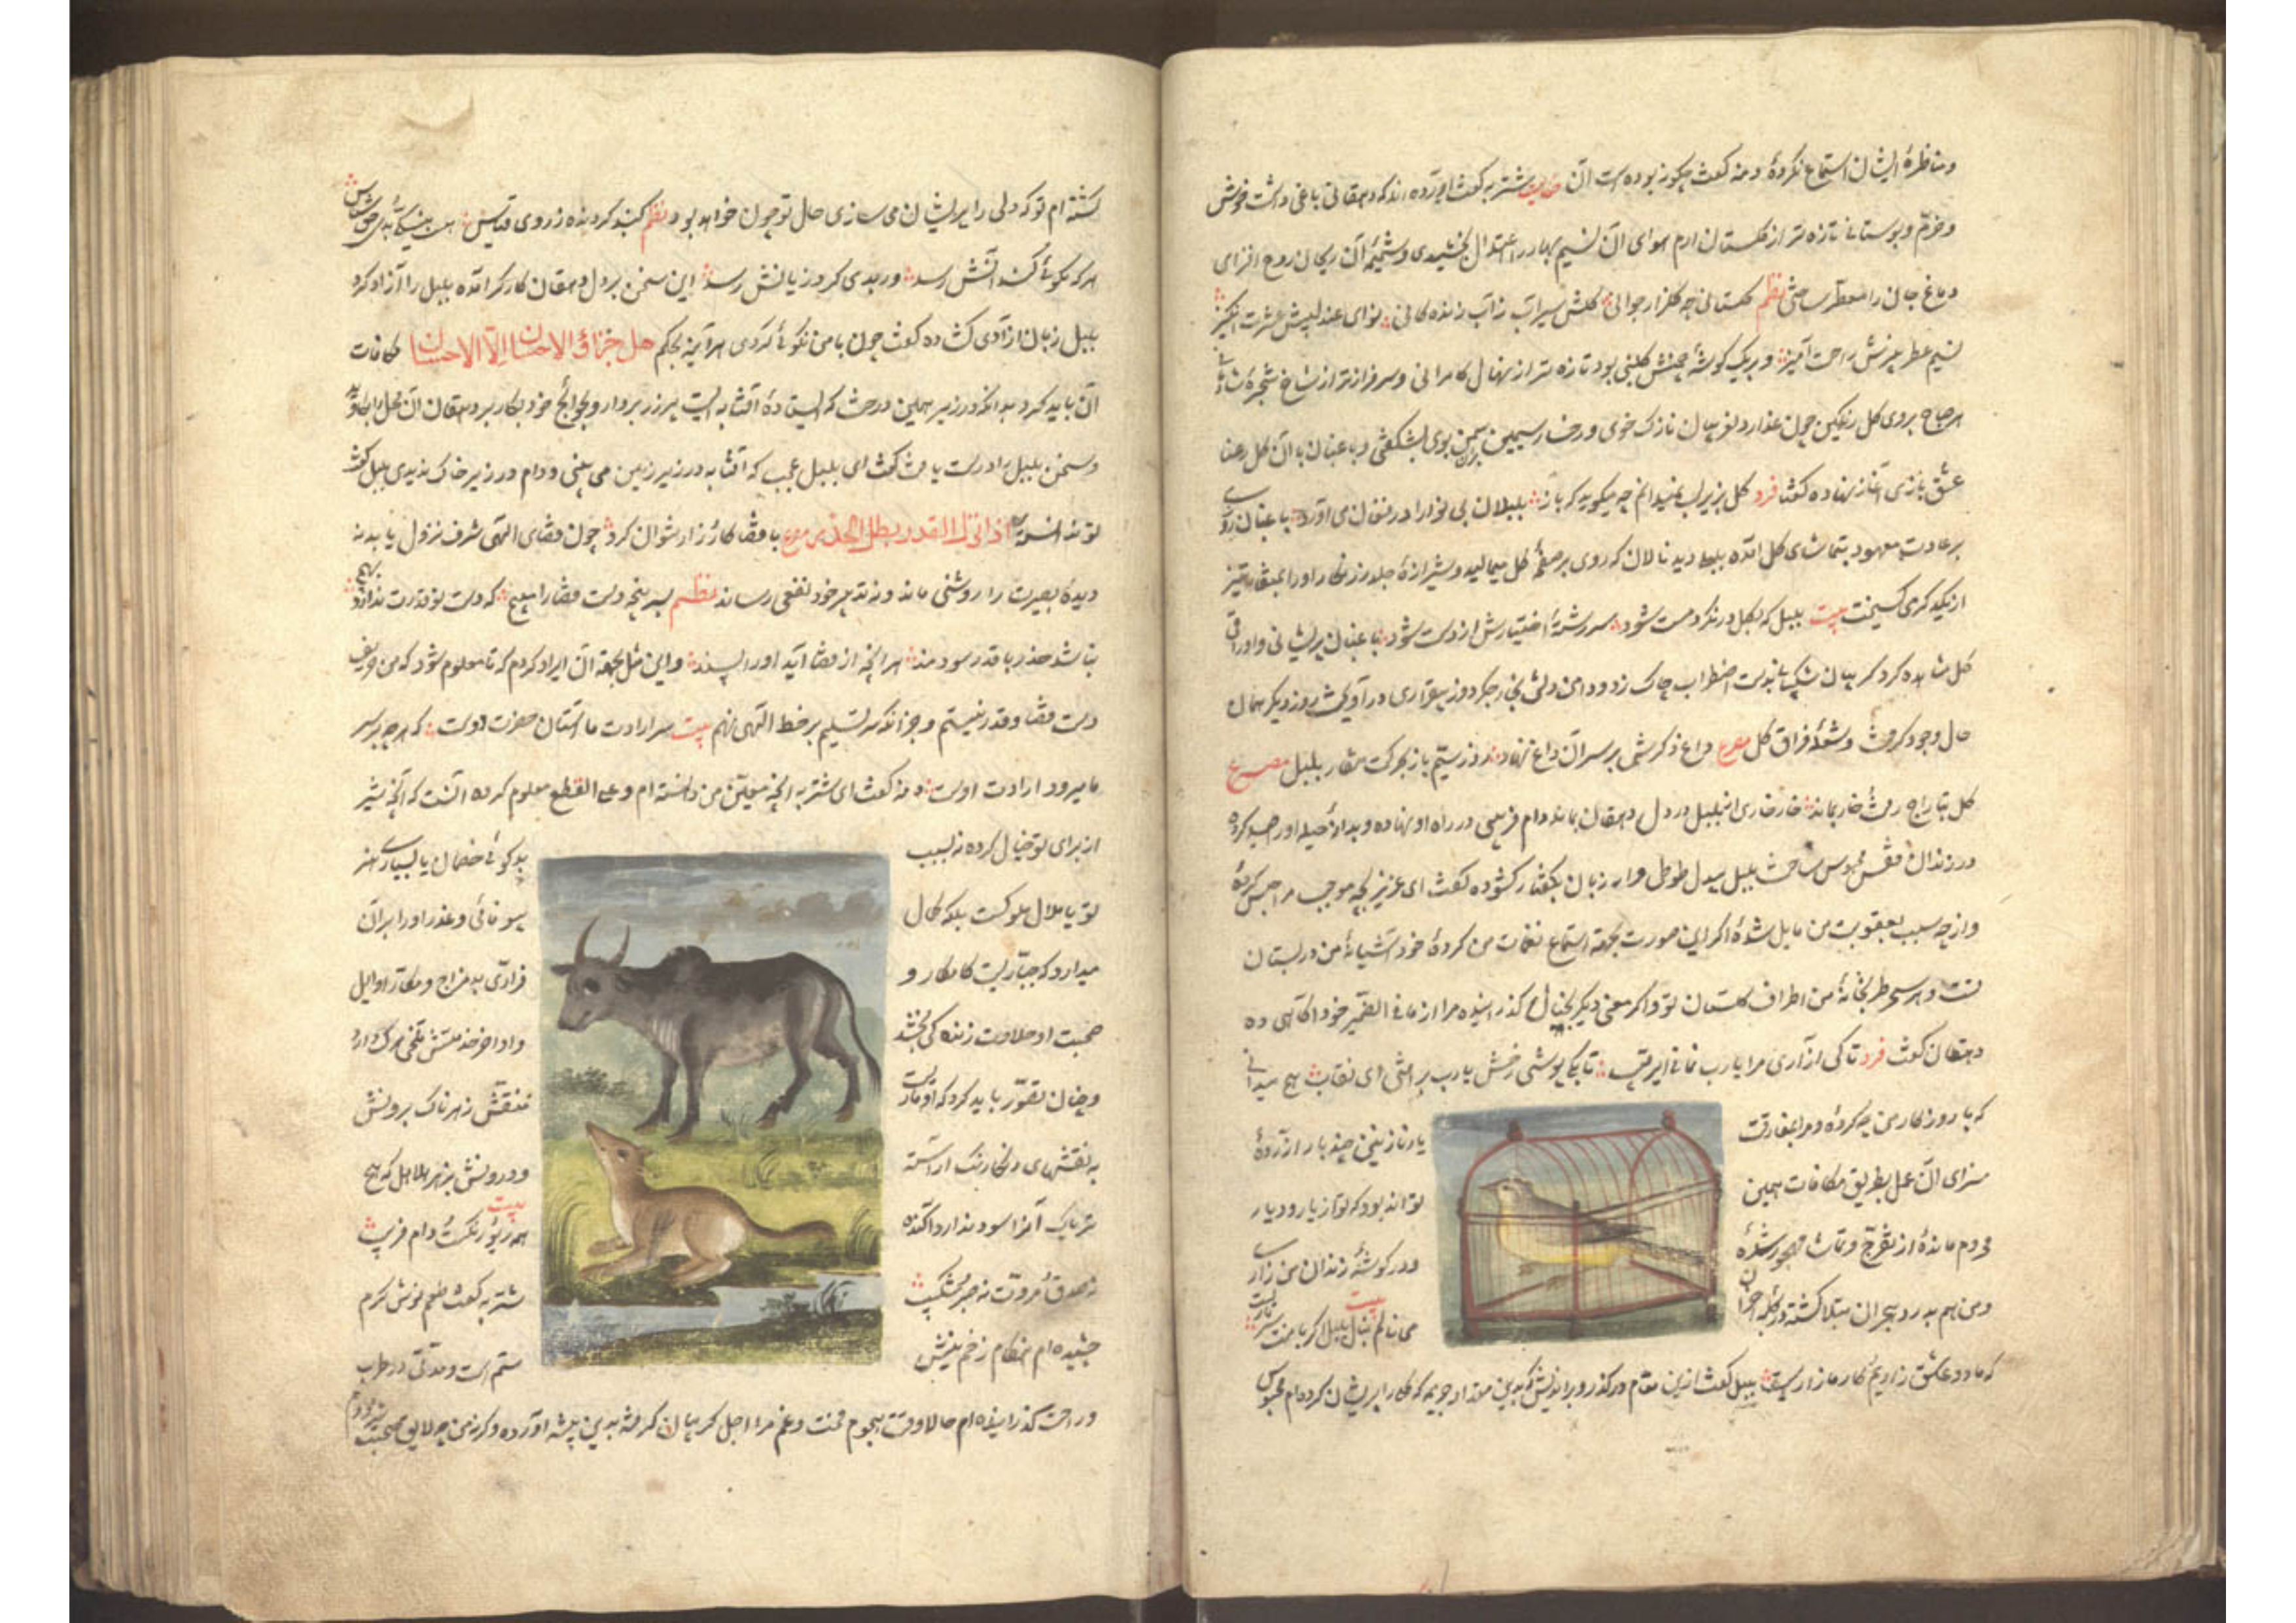 ومناظرهٔ ایشان استماع نکردهٔ دمنه کفت چکونه بوده است آن حکایت شتربه کفت آورده اند که دهقانی باغی داشت خوش
وخرّم وبوستانی تازه تر از کلستان ارم هوای آن نسیم بهار را اعتدال بخشیدی وشمیم آن ریحان روح افزای
دماغ جان را معطر ساختی نظم کلستانی چو کلزار جوانی کلش سیراب ز آب زنده کانی نوای عندلیبش عشرت انکیز
نسیم عطر بیزش راحت آمیز وبر یک کوشهٔ چمنش کلبنی بود تازه تر از نهال کامرانی وسرفراز تر از شاخ شجرهٔ شادمانی
هر صباح بروی کل رنکین چون عذار دلفریبان نازک خوی ورخسار سیمین بران سمن بوی بشکفتی وباغبان با آن کل رعنا
عشق بازی آغاز نهاده کفتی فرد کل بزیر لب نمیدانم چه میکوید که باز بلبلان بی نوا را در فغان می آورد باغبان روزی
بر عادت معهود بتماشای کل آمده بلبلی دید نالان که روی بر صفحهٔ کل میمالید وشیرازهٔ جلد زرنکار او را بمنقار تیز
از یکدیکر می کسیخت بیت بلبل که بکل در نکرد مست شود سر رشتهٔ اختیارش از دست شود باغبان پریشانی اوراق
کل مشاهده کرد کریبان شکیبائی بدست اضطراب چاک زد ودامن دلش بخار جکردوز بیقراری در آویخت روز دیکر همان
حال وجود کرفت وشعلهٔ فراق کل مصرع داغ دکرش بر سر آن داغ نهاد روز سیم باز بحرکت منقار بلبل مصرع
کل بتاراج رفت خار بماند خارخاری از بلبل در دل دهقان بماند دام فریبی در راه او نهاده وبدانهٔ حیله او را صید کرده
در زندان قفس محبوس ساخت بلبل بیدل طوطی وار زبان بکفتار کشوده کفت ای عزیز بچه موجب مرا حبس کردهٔ
واز چه سبب بعقوبت من مایل شدهٔ اکر این صورت بجهة استماع نغمات من کردهٔ خود آشیانهٔ من در بستان
تست وهر سحر طربخانهٔ من اطراف کلستان تو واکر معنی دیکر بخیال کذرانیدهٔ مرا از ما فی الضمیر خود آکاهی ده
دهقان کفت فرد تا کی آزاری مرا یا رب نمانی ای رقیب تا بکی پوشی رخش یا رب بر افتی ای نقاب هیچ میدانی
که با روزکار من چه کردهٔ ومرا بمفارقت
یار نازنین چند بار آزردهٔ
سزای آن عمل بطریق مکافات همین
تواند بود که تو از یار ودیار
محروم ماندهٔ از تفرج وتماشا مهجور شدهٔ
ودر کوشهٔ زندان من زاری
ومن هم بدرد هجران مبتلا کشته در کلبهٔ احزان
می نالم بیت بنال بلبل اکر با منت سر یاریست
که ما دو عاشق زاریم کار ما زاریست بلبل کفت ازین مقام در کذر وبر اندیش که بدین مقدار جریمه که کل را پریشان کرده ام محبوس
کشته ام تو که دلی را پریشان می سازی حال تو چون خواهد بود نظم کنبد کردنده ز روی قیاس هست به نیکی وبدی حق شناس
هر که نکوئی کند آتش رسد ور بدی کرد زیانش رسد این سخن بر دل دهقان کارکر آمده بلبل را آزاد کرد
بلبل زبان آزادی کشاده کفت چون با من نکوئی کردی هر آینه بحکم هل جزاؤ الاحسان الا الاحسان مکافات
آن باید کرد بدانکه در زیر همین درخت که ایستادهٔ آفتابه ایست پر زر بردار وبحوایج خود بکار بر دهقان آن محل را بکاوید
وسخن بلبل را درست یافت کفت ای بلبل عجب که آفتابه در زیر زمین می بینی ودام در زیر خاک ندیدی بلبل کفت
تو ندانسته اذا نزل القدر بطل الحذر مصرع با قضا کارزار نتوان کرد چون قضای الهی شرف نزول یابد نه
دیدهٔ بصیرت را روشنی ماند ونه تدبیر خرد نفعی رساند نظم سر پنجه دست قضا را مپیچ که دست تو قدرت ندارد بهیچ
نباشد حذر با قدر سودمند هر آنچه از قضا آید او را پسند واین مثل بجهة آن ایراد کردم که تا معلوم شود که من حریف
دست قضا وقدر نیستم وجز آنکه سر تسلیم بر خط الهی نهم بیت سر ارادت ما آستان حضرت دوست که هر چه بر سر
ما میرود ارادت اوست دمنه کفت ای شتربه آنچه بیقین من دانسته ام وعلی القطع معلوم کرده آنست که آنچه شیر
از برای تو خیال کرده نه بسبب
بدکوئی خصمان یا بسیاری هنر
تو یا ملال ملوکست بلکه کمال
بیوفائی وغدر او را بر آن
میدارد که جبّاریست کامکار و
غدّاری بد مزاج ومکّار اوایل
صحبت او حلاوت زنده کی بخشد
واواخر خدمتش تلخی مرک دارد
وچنان تصوّر باید کرد که او ماریست
منقش زهرناک برونش
به نقشهای رنکارنک آراسته
ودرونش بزهر هلاهل که هیچ
تریاک آنرا سود ندارد آکنده
بیت همه ریو ورنکست ودام فریب
نه صدق مروّت نه صبر شکیب
شتربه کفت طعم نوش کرم
چشیده ام هنکام زخم نیش
ستم است ومدتی در طرب
وراحت کذرانیده ام حالا وقت هجوم محنت وغم مرا اجل کریبان کرفته بدین بیشه آورده وکرنه من چه لایق صحبت شیر بودم